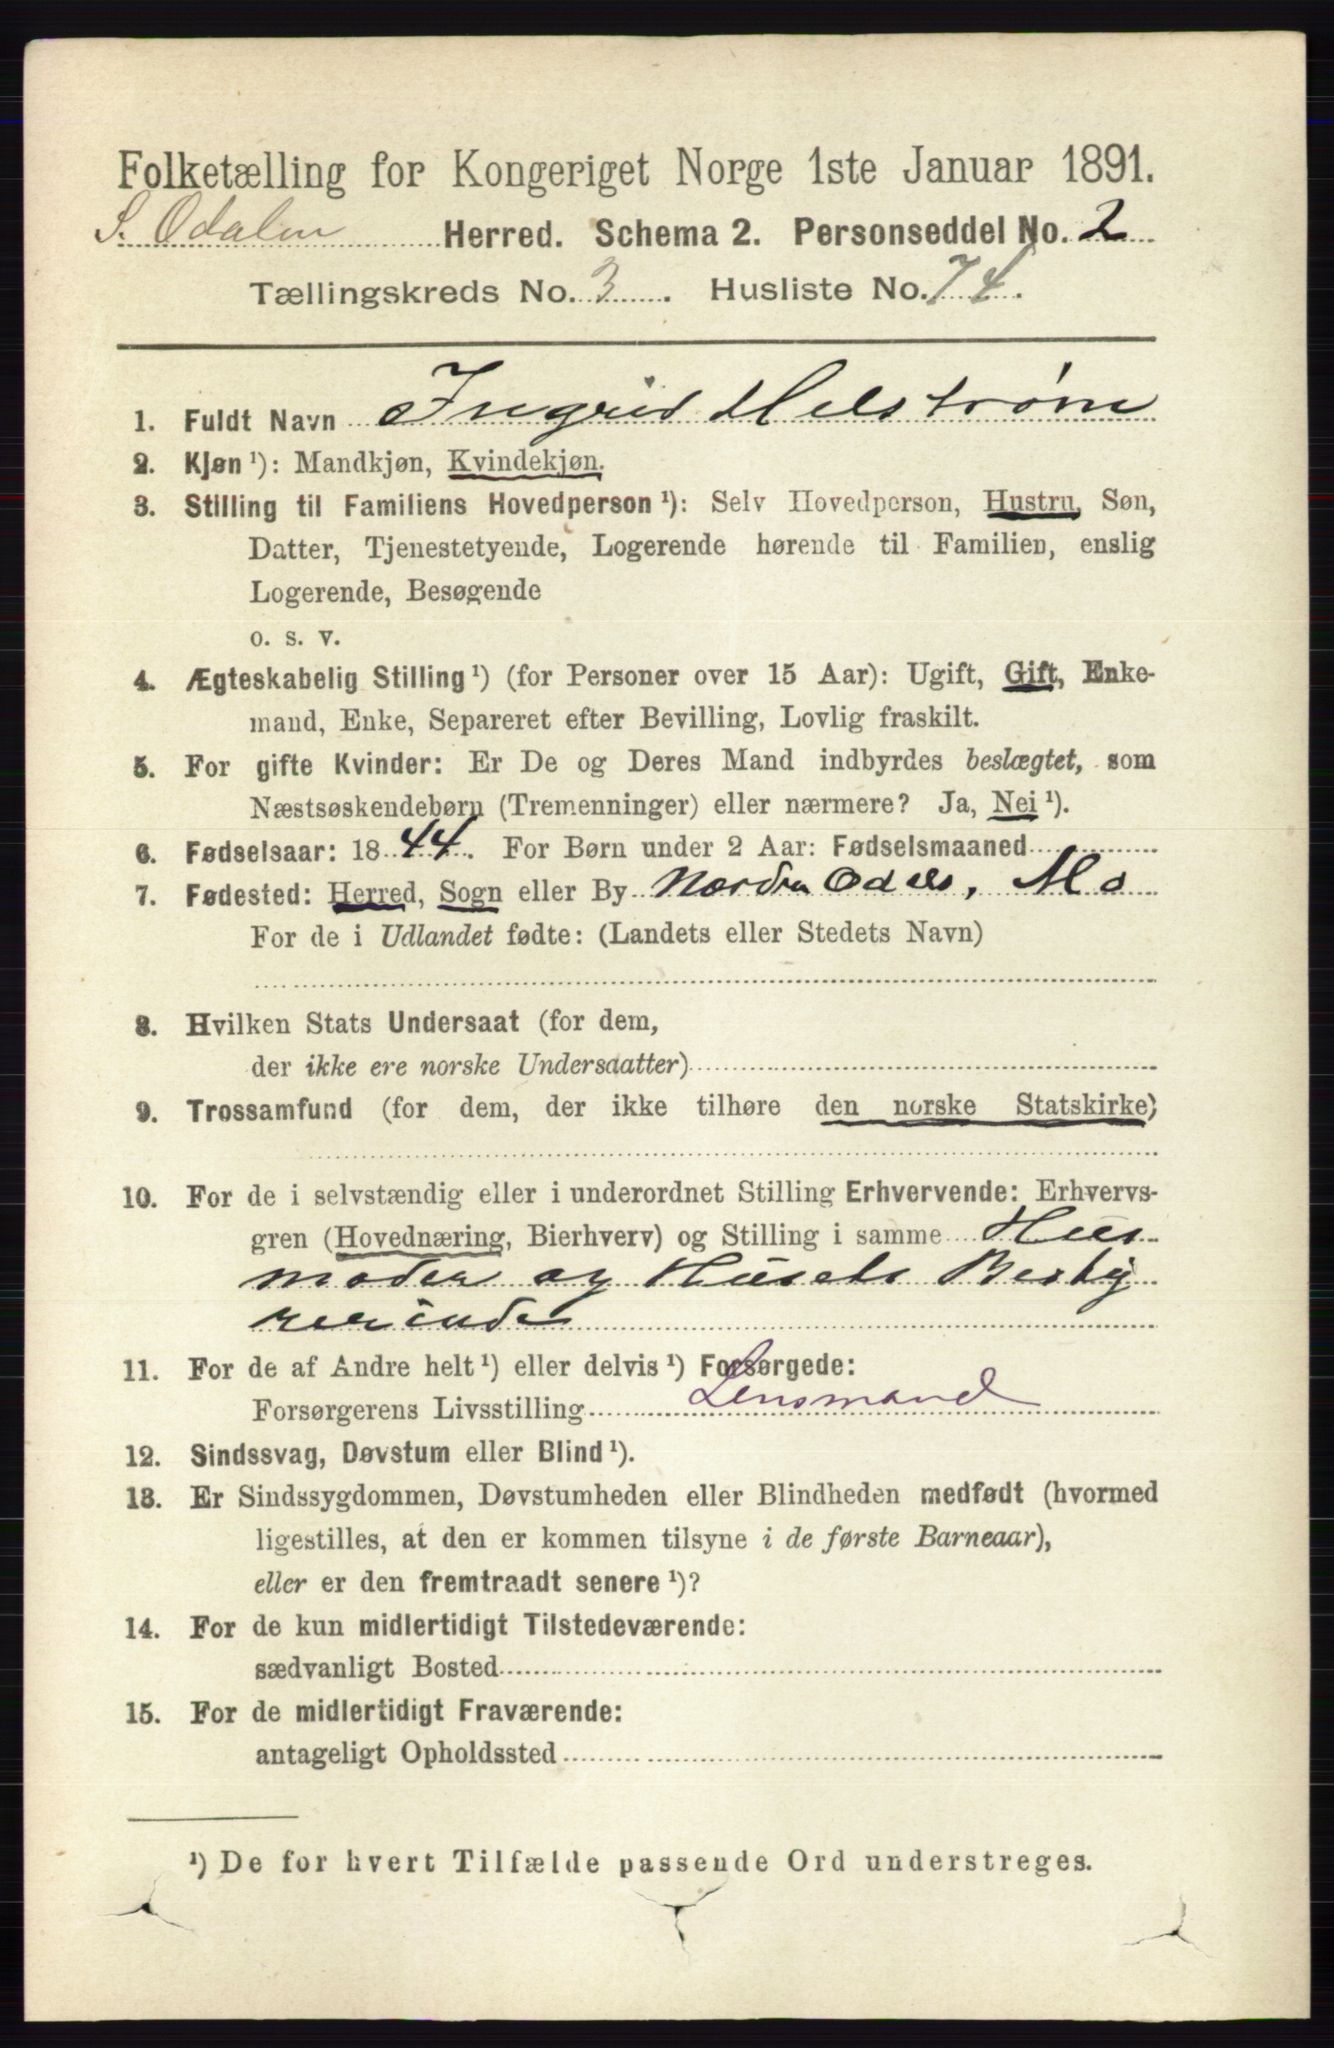 Folketælling for Kongeriget Norge 1ste Januar 1891.
S. Odalen Herred. Schema 2. Personseddel No. 2
Tællingskreds No. 3. Husliste No. 74.
1. Fuldt Navn Ingrid Helstrøm
2. Kjøn ¹): Mandkjøn, Kvindekjøn.
3. Stilling til Familiens Hovedperson ¹): Selv Hovedperson, Hustru, Søn,
Datter, Tjenestetyende, Logerende hørende til Familien, enslig
Logerende, Besøgende
o. s. v.
4. Ægteskabelig Stilling ¹) (for Personer over 15 Aar): Ugift, Gift, Enke-
mand, Enke, Separeret efter Bevilling, Lovlig fraskilt.
5. For gifte Kvinder: Er De og Deres Mand indbyrdes beslægtet, som
Næstsøskendebørn (Tremenninger) eller nærmere? Ja, Nei ¹).
6. Fødselsaar: 1844. For Børn under 2 Aar: Fødselsmaaned
7. Fødested: Herred, Sogn eller By Nordre Odals, Mo
For de i Udlandet fødte: (Landets eller Stedets Navn)
8. Hvilken Stats Undersaat (for dem,
der ikke ere norske Undersaatter)
9. Trossamfund (for dem, der ikke tilhøre den norske Statskirke)
10. For de i selvstændig eller i underordnet Stilling Erhvervende: Erhvervs-
gren (Hovednæring, Bierhverv) og Stilling i samme Hus
moder og Husets Besty
rerinde
11. For de af Andre helt ¹) eller delvis ¹) Forsørgede:
Forsørgerens Livsstilling Lensmand
12. Sindssvag, Døvstum eller Blind ¹).
13. Er Sindssygdommen, Døvstumheden eller Blindheden medfødt (hvormed
ligestilles, at den er kommen tilsyne i de første Barneaar),
eller er den fremtraadt senere ¹)?
14. For de kun midlertidigt Tilstedeværende:
sædvanligt Bosted
15. For de midlertidigt Fraværende:
antageligt Opholdssted
¹) De for hvert Tilfælde passende Ord understreges.